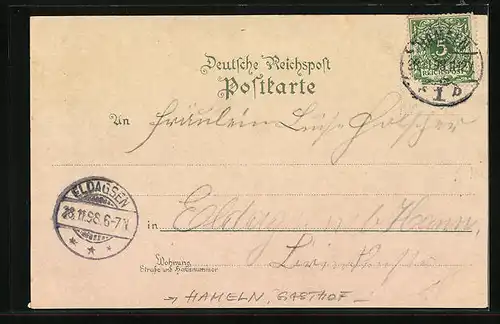 5
REICHSPOST
1 b
Deutsche Reichspost
Postkarte
An Fräulein Luise Hölscher
ELDAGSEN
28.11.98. 6-7N
in Eldagsen
Wohnung
Straße und Hausnummer
→ HAMELN, GASTHOF -